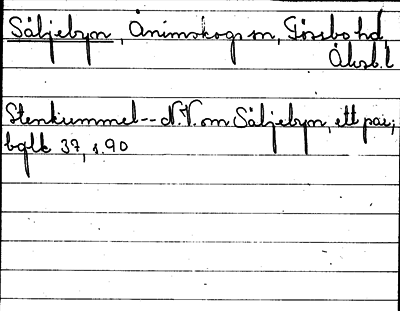 Säljebyn, Ånimskogs sn, Tössbo hd
Älvsb.l
Stenkummel -- N.V. om Säljebyn, ett par;
bglk 37, s.90